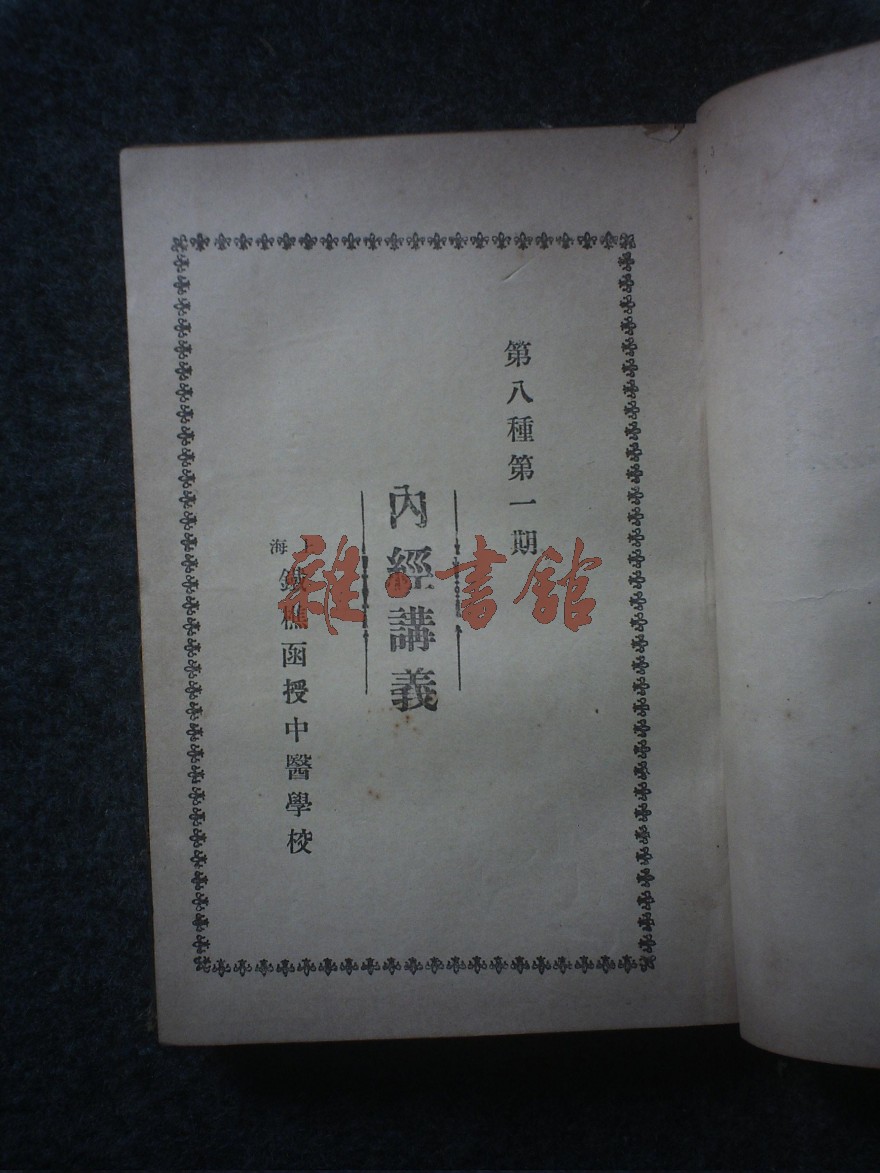 第八種第一期
內經講義
上海
鐵樵函授中醫學校
雜·書館